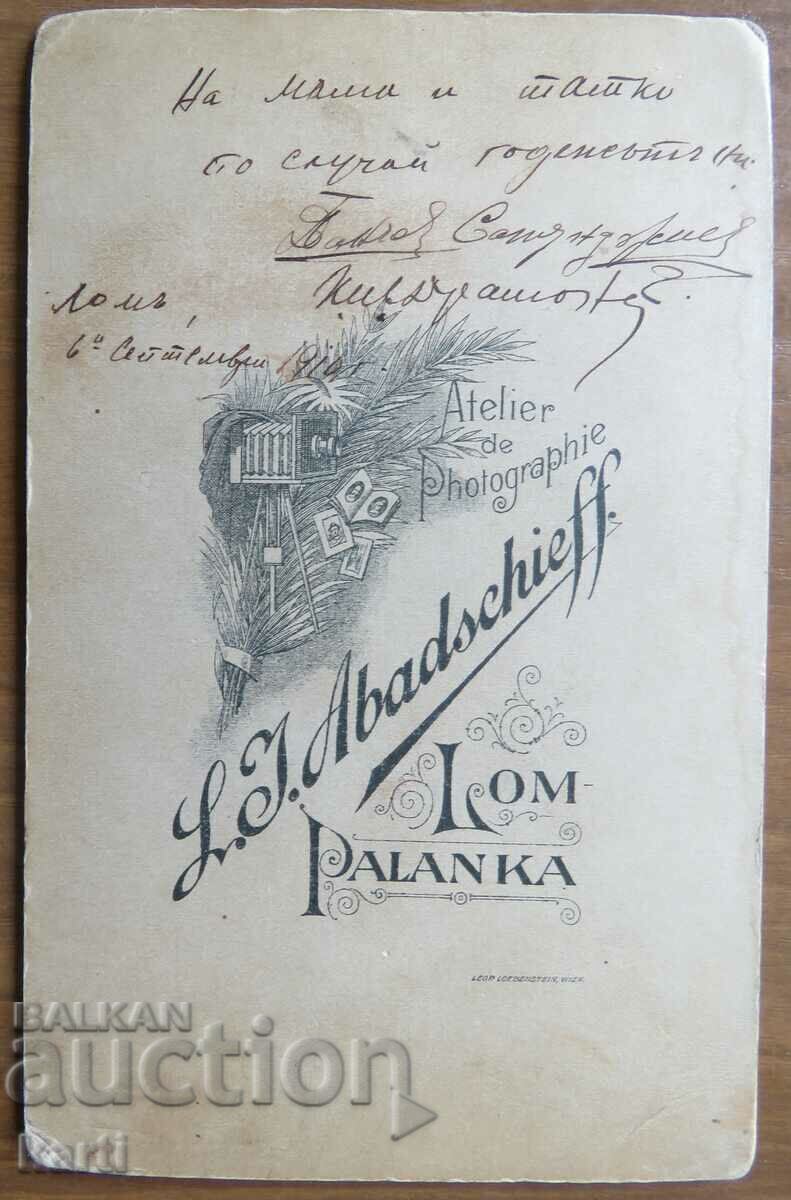 На мама и татко
по случай годежътъ ни.
Ломъ,
6й Септемврий 1910 г.
Atelier
de
Photographie
L. J. Abadschieff.
LOM-
PALANKA
LEOP. LOEBENSTEIN, WIEN.
BALKAN
auction
karti